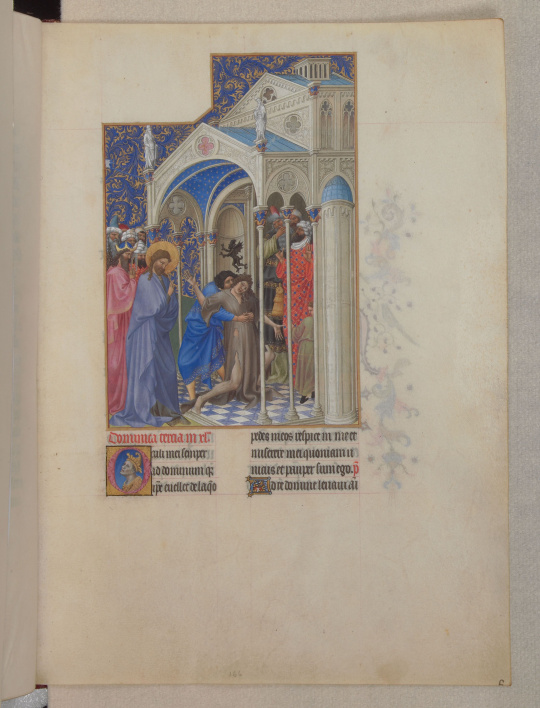 Dominica tercia in xlª
Oculi mei semper
ad dominum qr
ipe euellet de laqo
pedes meos respice in me et
miserere mei quoniam u
nicus et pauper sum ego. p̄
Ad te domine leuaui ai